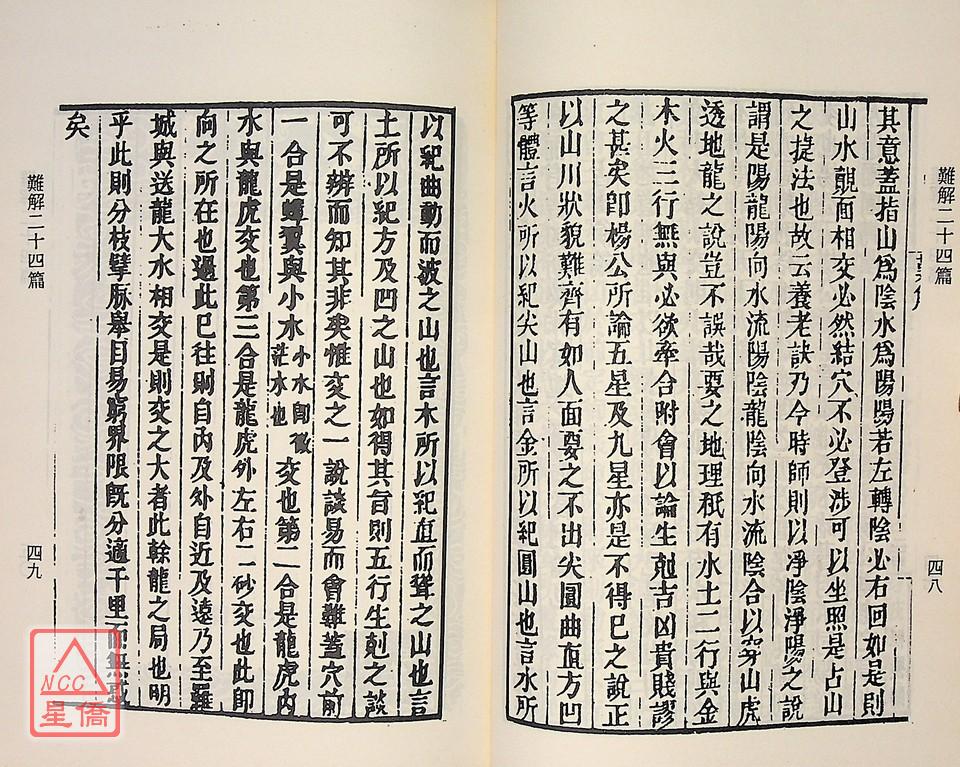 難解二十四篇
四八
其意蓋指山爲陰水爲陽陽若左轉陰必右回如是則
山水覿面相交必然結穴不必登涉可以坐照是占山
之捷法也故云養老訣乃今時師則以淨陰淨陽之說
謂是陽龍陽向水流陽陰龍陰向水流陰合以穿山虎
透地龍之說豈不誤哉要之地理秖有水土二行與金
木火三行無與必欲牽合附會以論生剋吉凶貴賤謬
之甚矣卽楊公所論五星及九星亦是不得已之說正
以山川狀貌難齊有如人面要之不出尖圓曲直方凹
等體言火所以紀尖山也言金所以紀圓山也言水所
以紀曲動而波之山也言木所以紀直而聳之山也言
土所以紀方及凹之山也如得其旨則五行生剋之談
可不辨而知其非矣惟交之一說談易而會難蓋穴前
一合是蟬翼與小水小水卽微茫水也交也第二合是龍虎內
水與龍虎交也第三合是龍虎外左右二砂交也此卽
向之所在也過此已往則自內及外自近及遠乃至羅
城與送龍大水相交是則交之大者此幹龍之局也明
乎此則分枝擘脉舉目易窮界限旣分適千里而無惑
矣
難解二十四篇
四九
NCC
星僑